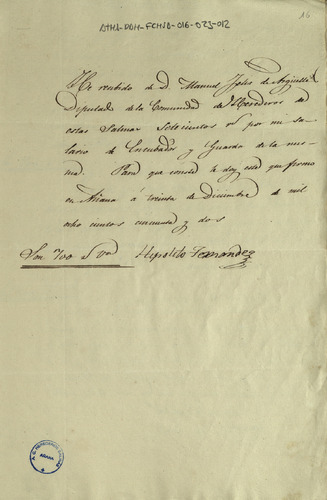 ATHA-DAH-FCHSA-016-023-012
16
He recibido de D. Manuel Felix de
Diputado de la Comunidad de Herederos de
estas Salinas Setecientos rs por mi sa-
lario de y Guarda de la mis-
ma. Para que conste la doy este que firmo
en Añana á treinta de Diciembre de mil
ocho cientos cincuenta y dos
Son 700 rs vn Hipolito Fernandez
AÑANA